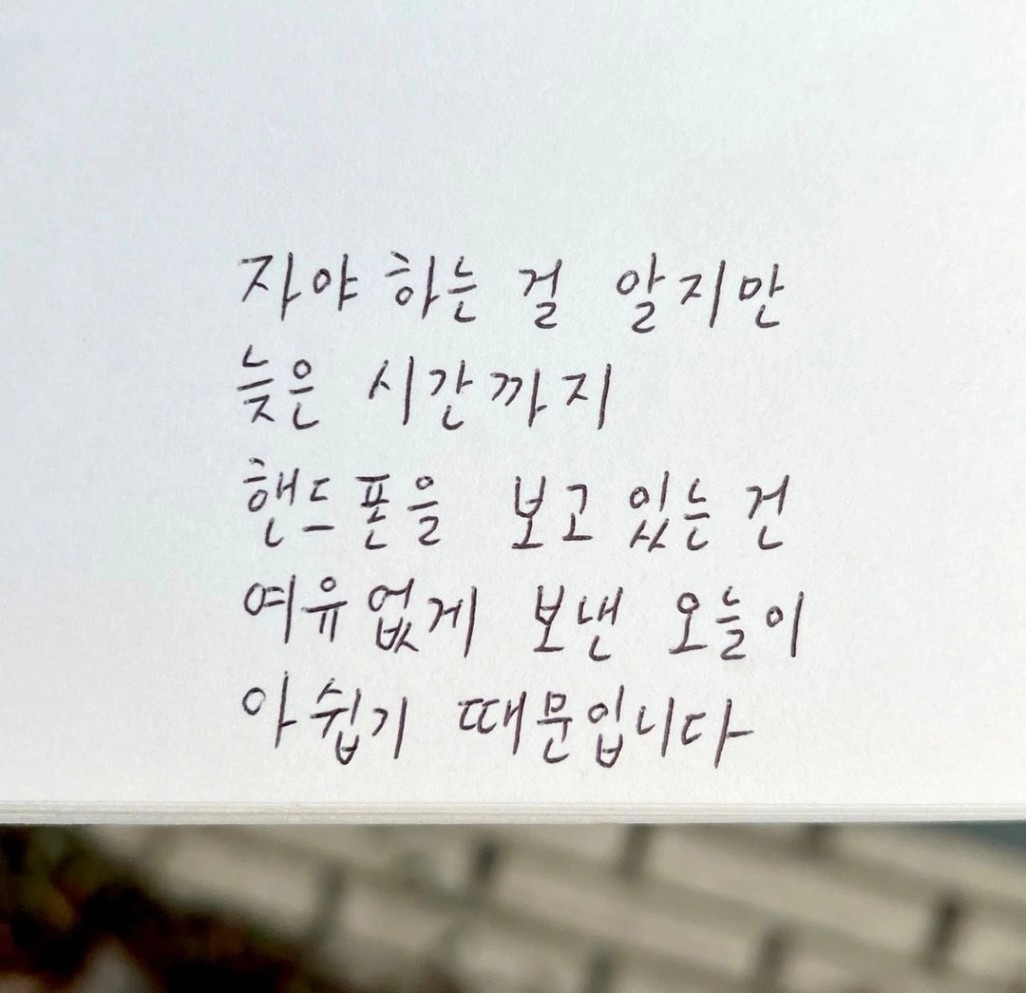 자야 하는 걸 알지만
늦은 시간까지
핸드폰을 보고 있는 건
여유없게 보낸 오늘이
아쉽기 때문입니다